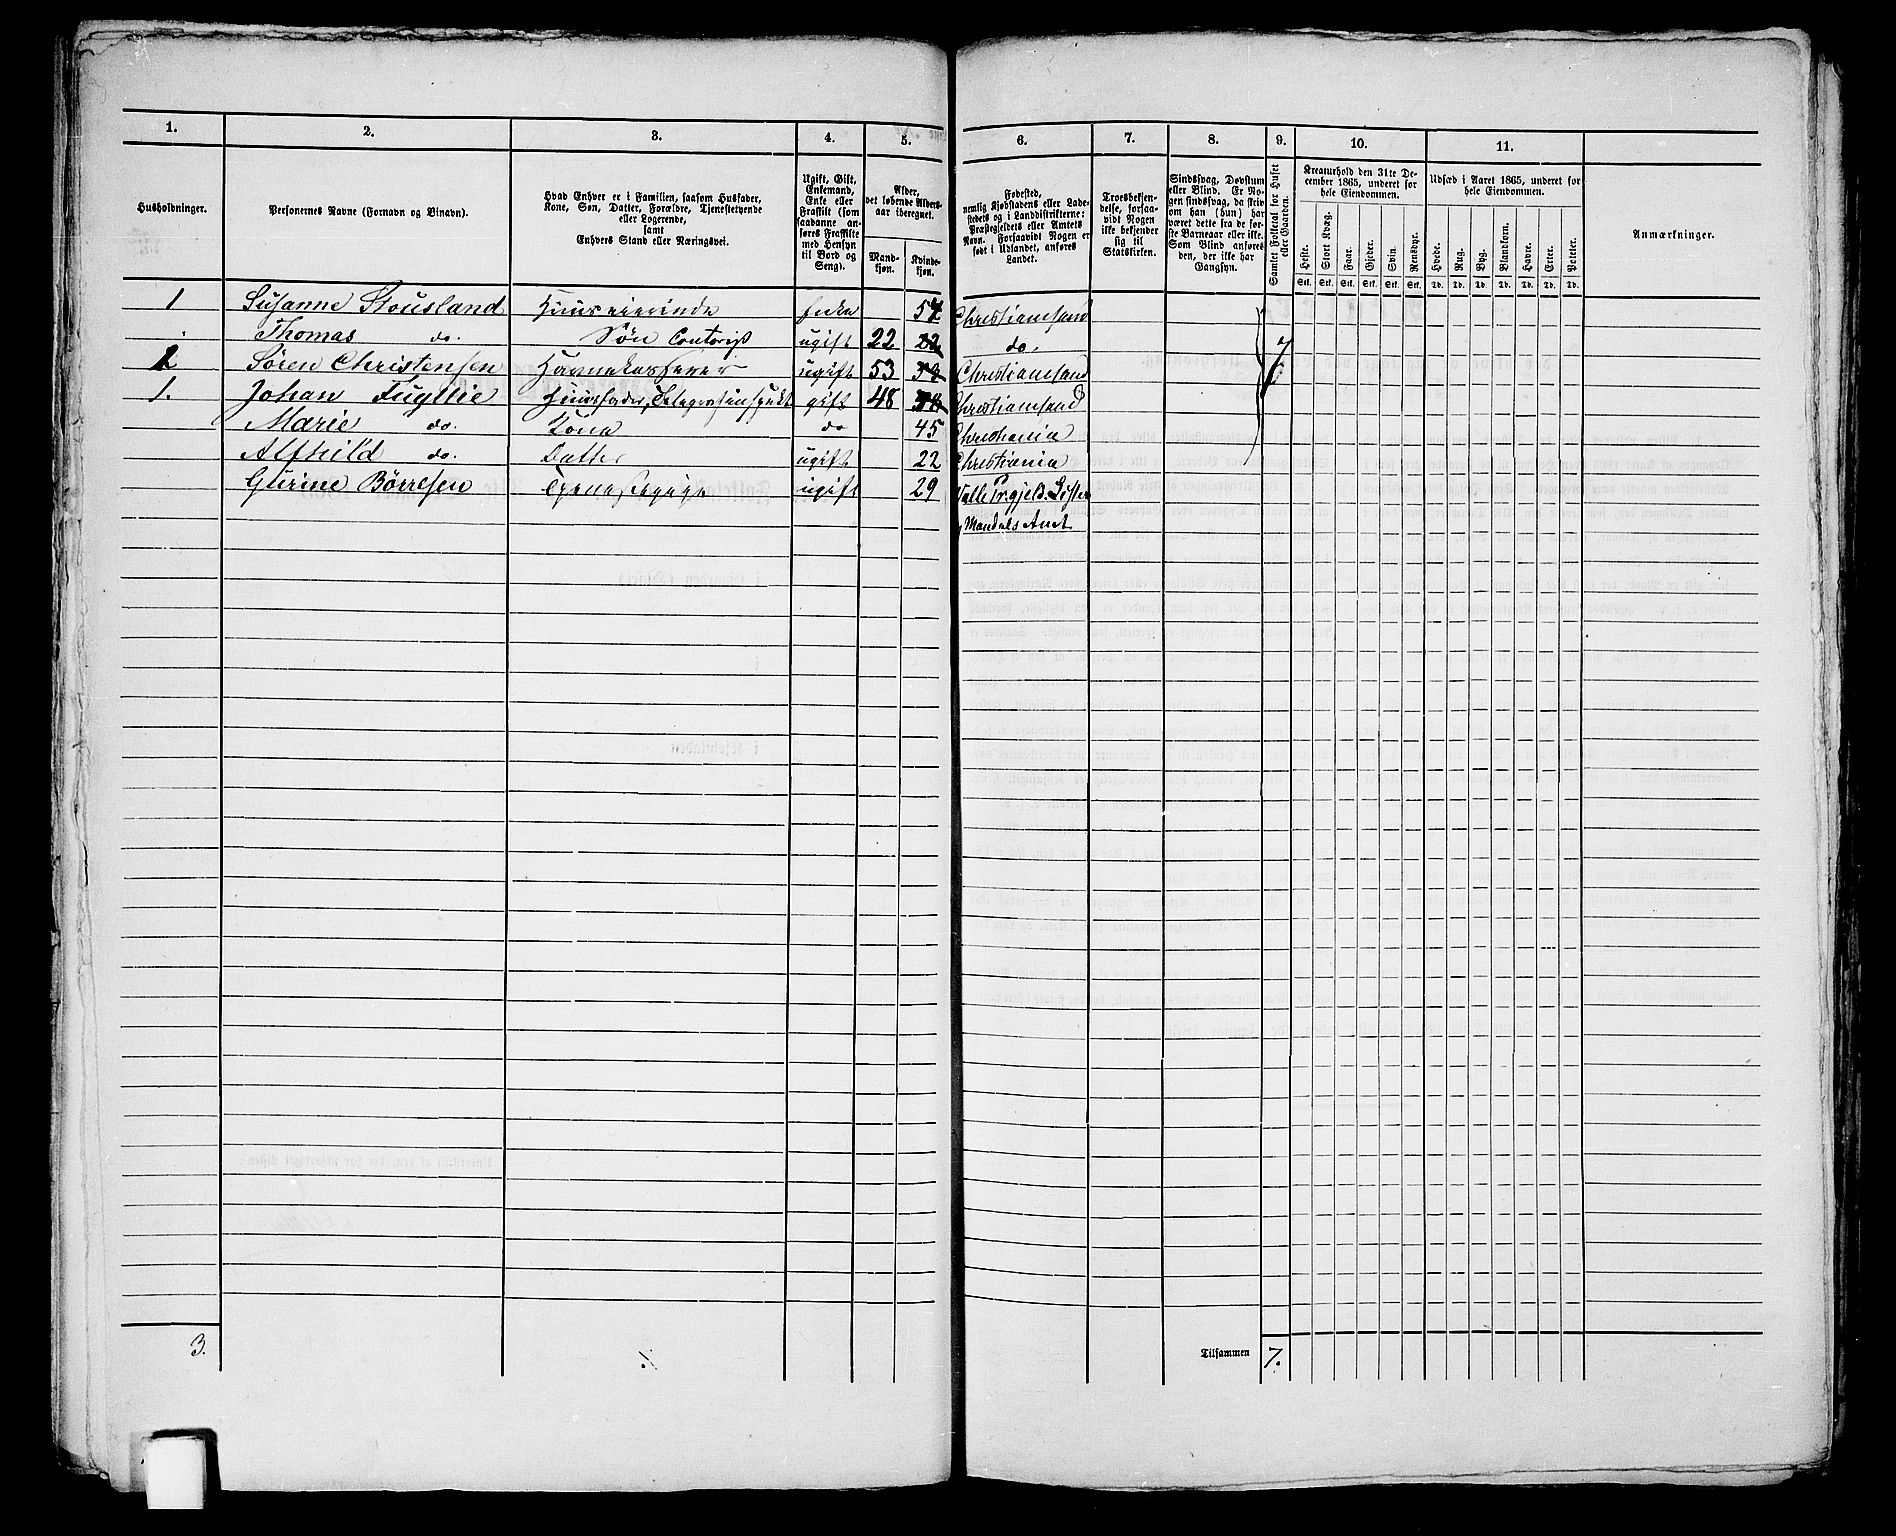 1. 2. 3. 4. 5. 6. 7. 8. 9. 10. 11.
Husholdninger.
Personernes Navne (Fornavn og Binavn).
Hvad Enhver er i Familien, saasom Husfader,
Kone, Søn, Datter, Forældre, Tjenestetyende
eller Logerende,
samt
Enhvers Stand eller Næringsvei.
Ugift, Gift,
Enkemand,
Enke eller
Fraskilt (som
saadanne an-
føres Fraskilte
med Hensyn
til Bord og
Seng).
Alder,
det løbende Alders-
aar iberegnet.
Mand-
kjøn.
Kvinde-
kjøn.
Fødested,
nemlig Kjøbstadens eller Lade-
stedets og i Landdistrikterne:
Præstegjeldets eller Amtets
Navn. Forsaavidt Nogen er
født i Udlandet, anføres
Landet.
Troesbekjen-
delse, forsaa-
vidt Nogen
ikke bekjender
sig til
Statskirken.
Sindssvag, Døvstum
eller Blind. Er No-
gen sindssvag, da skriv
om han (hun) har
været dette fra de før-
ste Barneaar eller ikke.
Som Blind anføres
den, der ikke har
Gangsyn.
Samlet Folketal for Huset
eller Gaarden.
Kreaturhold den 31te De-
cember 1865, underet for
hele Eiendommen.
Heste. Stort Kvæg. Faar. Gjeder. Svin. Rensdyr.
Stk. Stk. Stk. Stk. Stk. Stk.
Udsæd i Aaret 1865, underet for
hele Eiendommen.
Hvede. Rug. Byg. Blandkorn. Havre. Erter. Poteter.
Td. Td. Td. Td. Td. Td. Td.
Anmærkninger.
1 Susanne Stousland Huuseierinde Enke 57 Christiansand
Thomas do. Søn Contorist ugift 22 22 do. 7
1 Søren Christensen Havnekasserer ugift 53 Christiansand
1. Johan Huusfader, Telegrafinspekt gift 48 Christiansand
Marie do. Kone do 45 Christiania
Alfhild do. Datter ugift 22 Christiania
Gurine Børresen Tjenestepige ugift 29 Valle Pr.gjeld. Lister
Mandals Amt
3. Tilsammen 7.